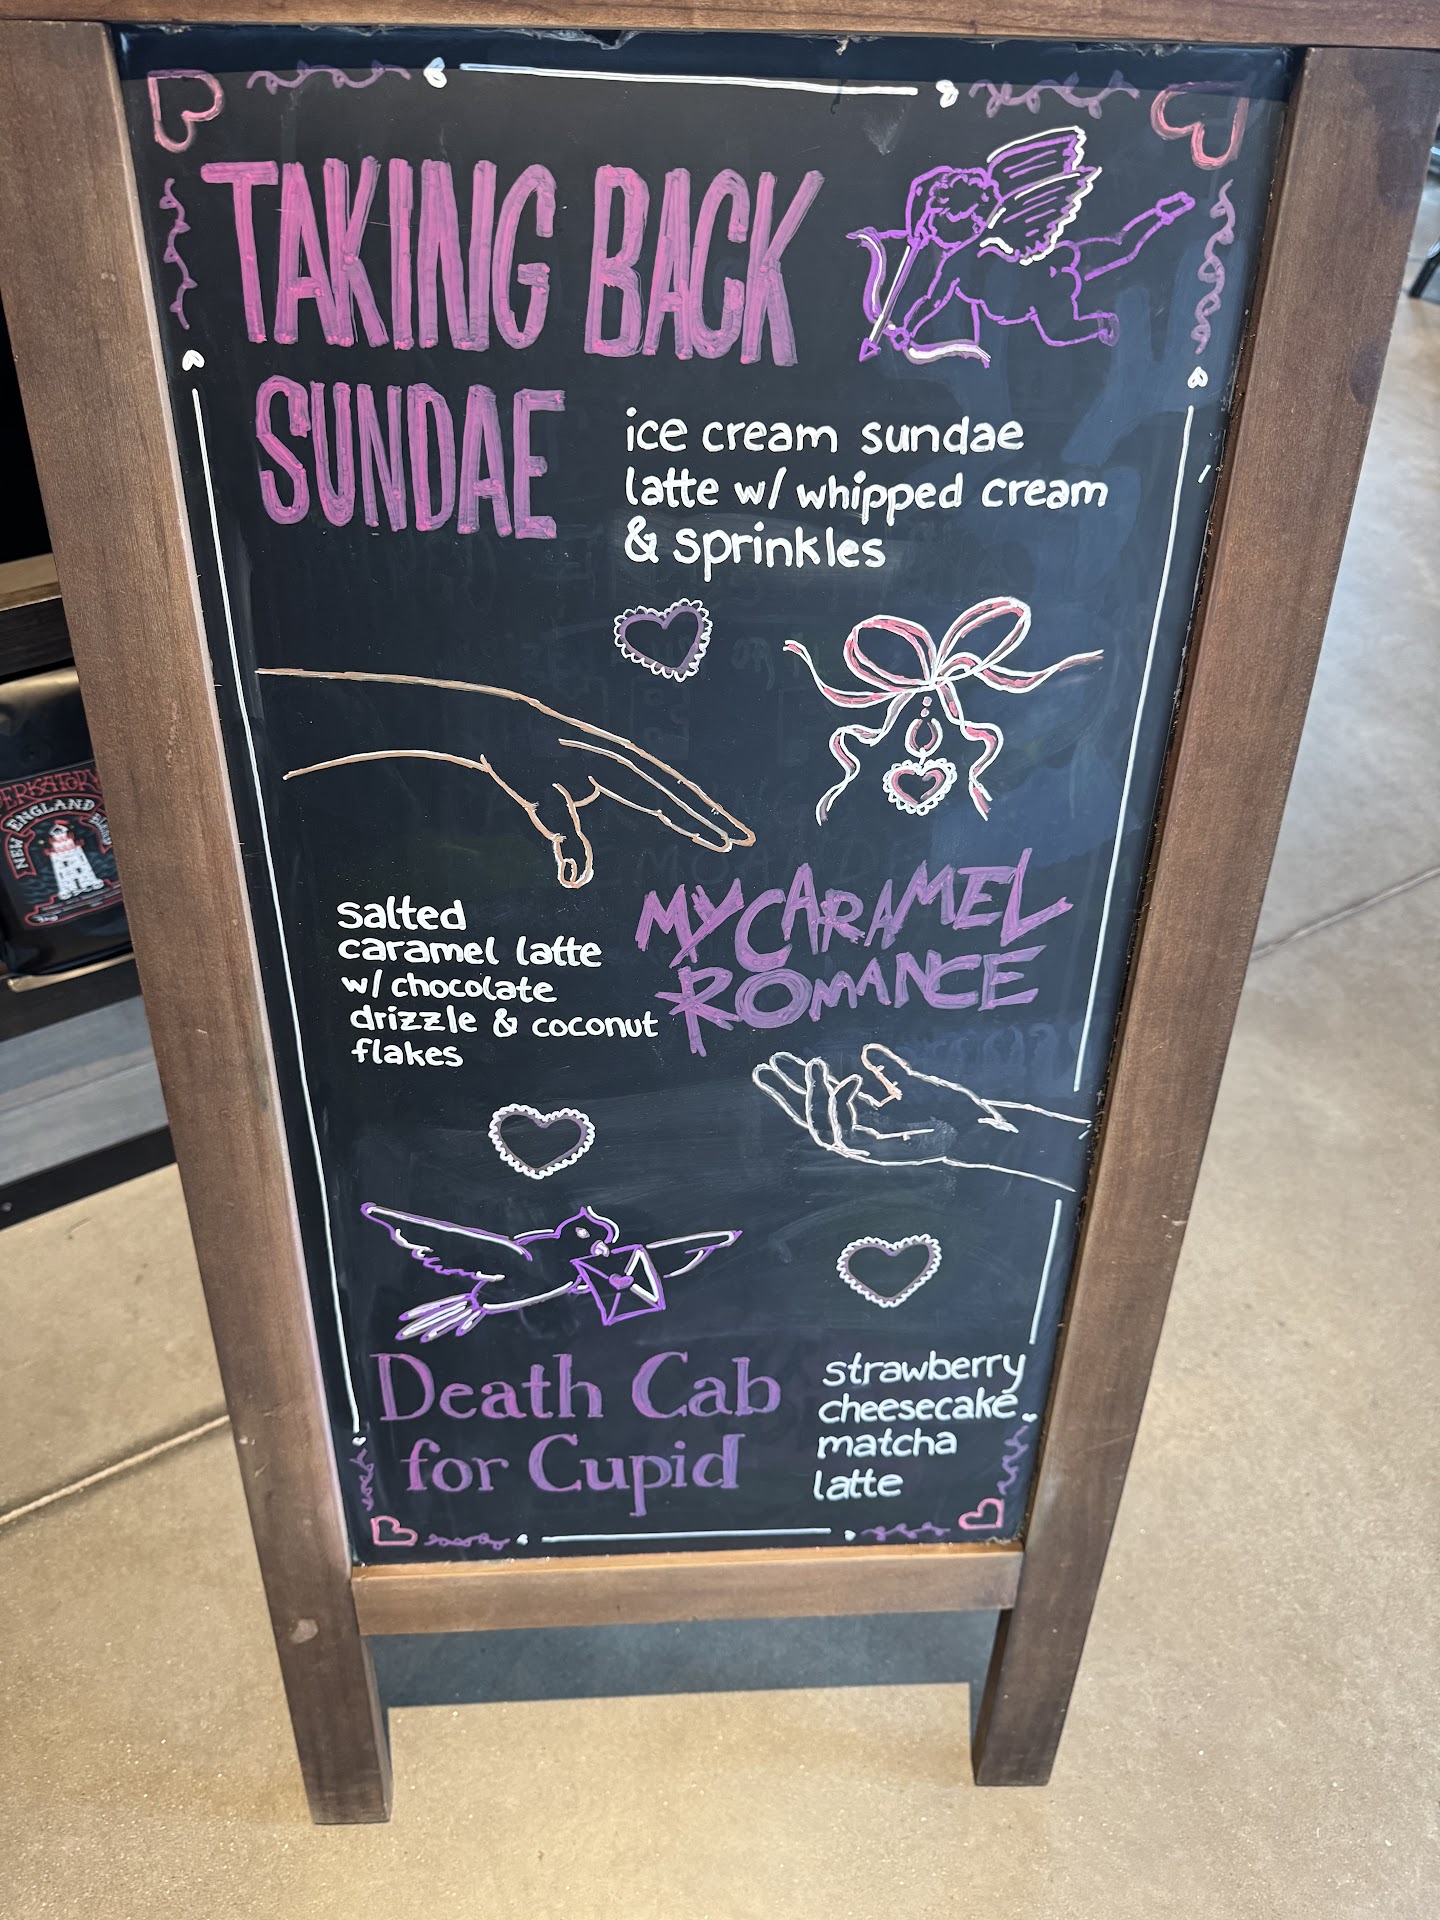 TAKING BACK
SUNDAE
ice cream sundae
latte w/ whipped cream
& sprinkles
salted
caramel latte
w/ chocolate
drizzle & coconut
flakes
MY CARAMEL
ROMANCE
Death Cab
for Cupid
strawberry
cheesecake
matcha
latte
NEW ENGLAND